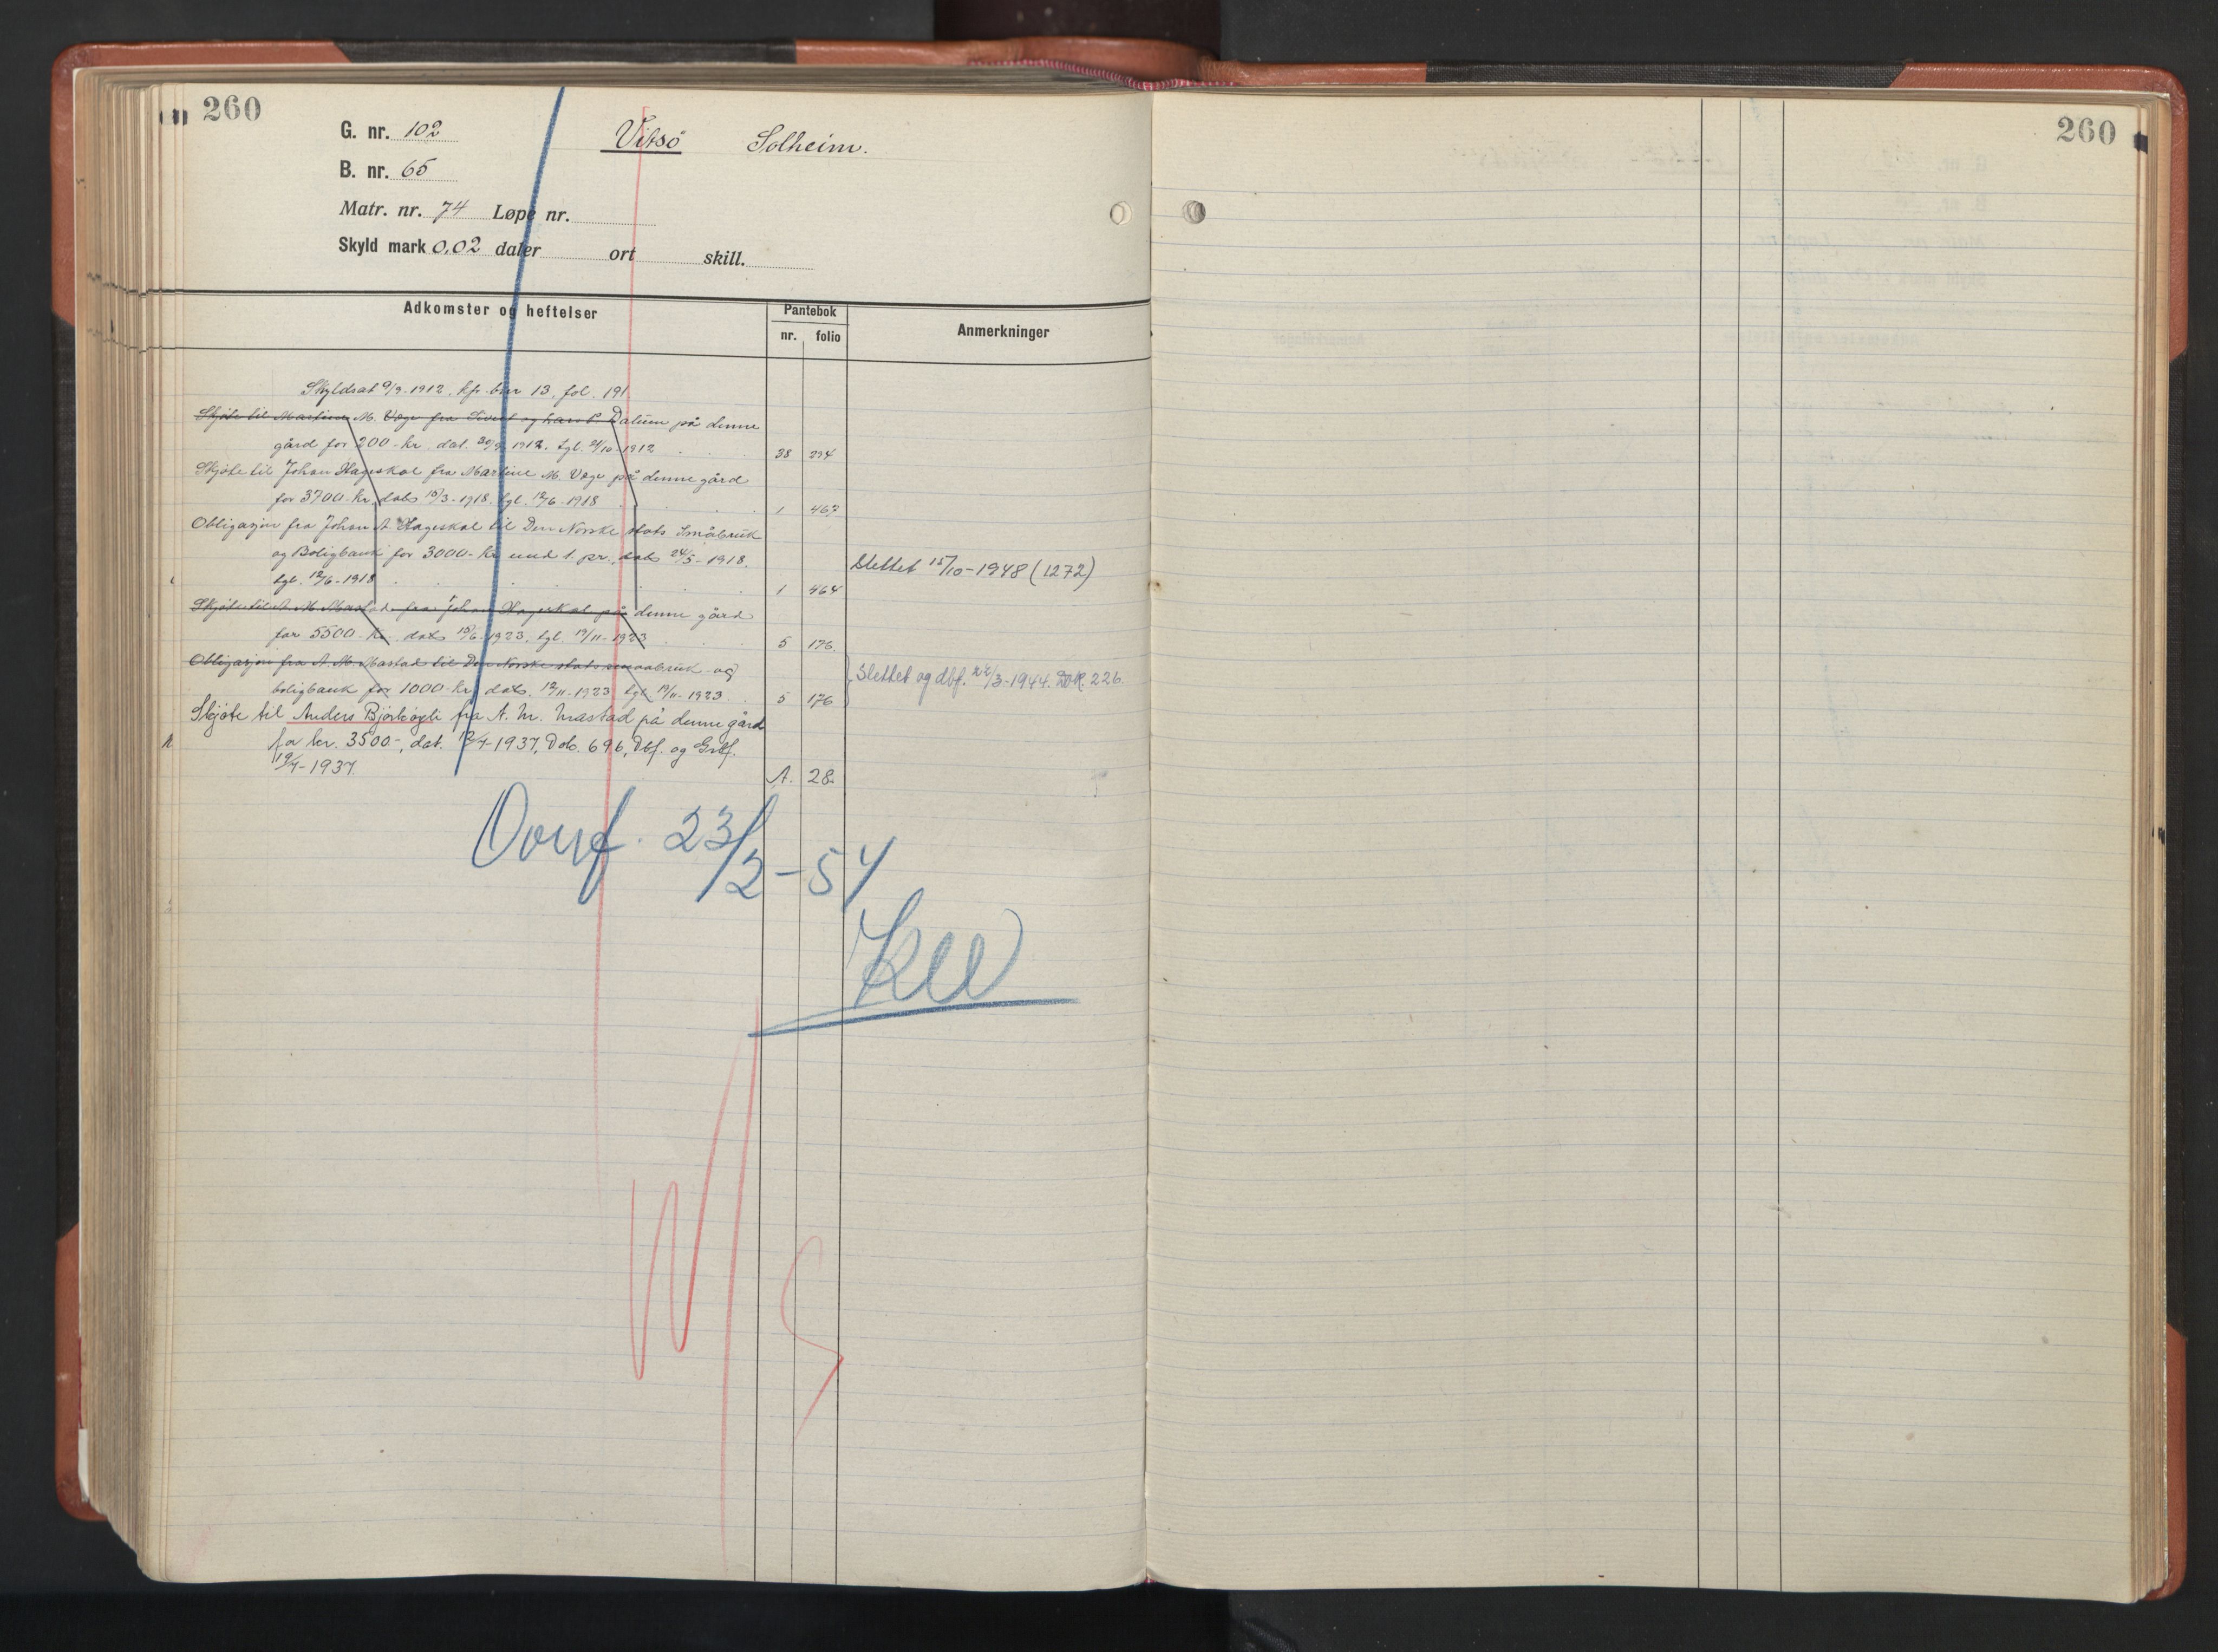 260
G. nr. 102
Vitsö Solheim.
B. nr. 65
Matr. nr. 74 Løpe nr.
Skyld mark 0,02 daler ort skill.
Adkomster og heftelser
Pantebok
nr. folio
Anmerkninger
Skyldsat 9/9-1912, fol. 191
Skjöte til Martine M. Vage fra Sivert og Dalum på denne
gård for 200-kr. dat. 30/9 1912. tgl. 21/10-1912
38 294
Skjöte til Johan Hageskal fra Martine M. Vage på denne gård
for 3700-kr. dat. 15/3-1918. tgl. 12/6-1918
1 467
Obligasjon fra Johan A Hageskal til Den Norske stats Småbruk
og Boligbank for 3000-kr med 1. pr., dat. 24/5-1918.
tgl. 12/6-1918
1 464
Slettet 15/10-1948 (1272)
Skjöte til A. M. Mastad fra Johan Hageskal på denne gård
for 5500-kr. dat. 15/6-1923, tgl. 19/11-1923
5 176
Obligasjon fra A. M. Mastad til Den Norske stats smaabruk-og
boligbank for 1000-kr, dat. 12/11-1923 tgl. 19/11-1923
5 176
Slettet og dbf. 22/3-1944. Dok. 226
Skjöte til Anders fra A. M. Mastad på denne gård
for kr. 3500-, dat. 12/4-1937, Dok. 696, Dbf. og Grbf.
19/4-1937
A. 28
Overf. 23/2-54
260